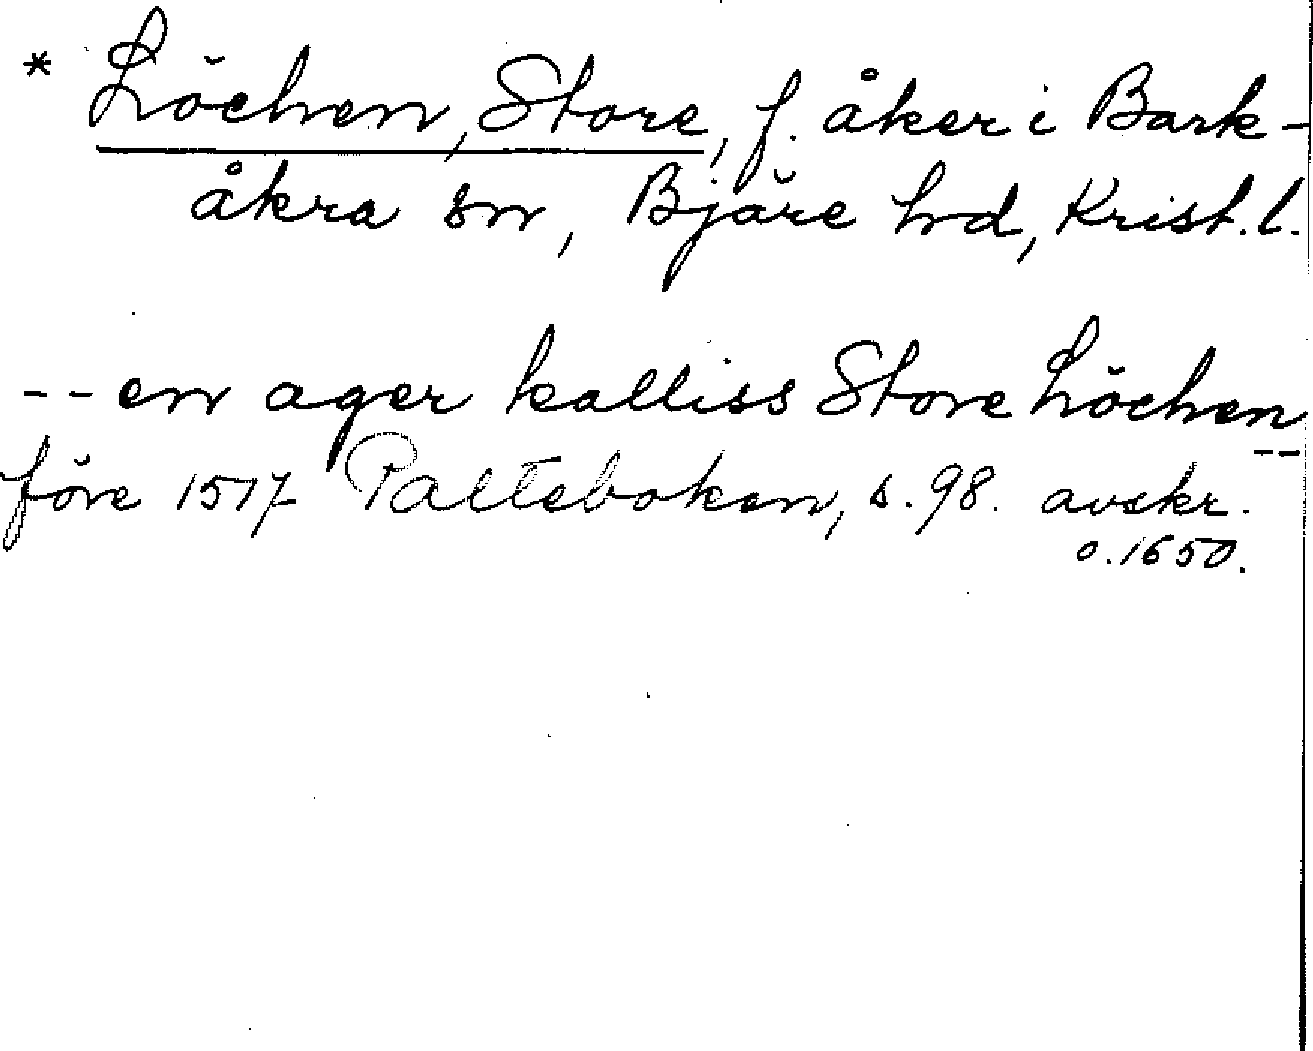 * Löchen, Store, f. åker i Bark-
åkra sn, Bjäre hd, Krist. l.
-- en ager kalliss Store Löchen
--
före 1517 Palteboken, s. 98. avskr.
o. 1650.